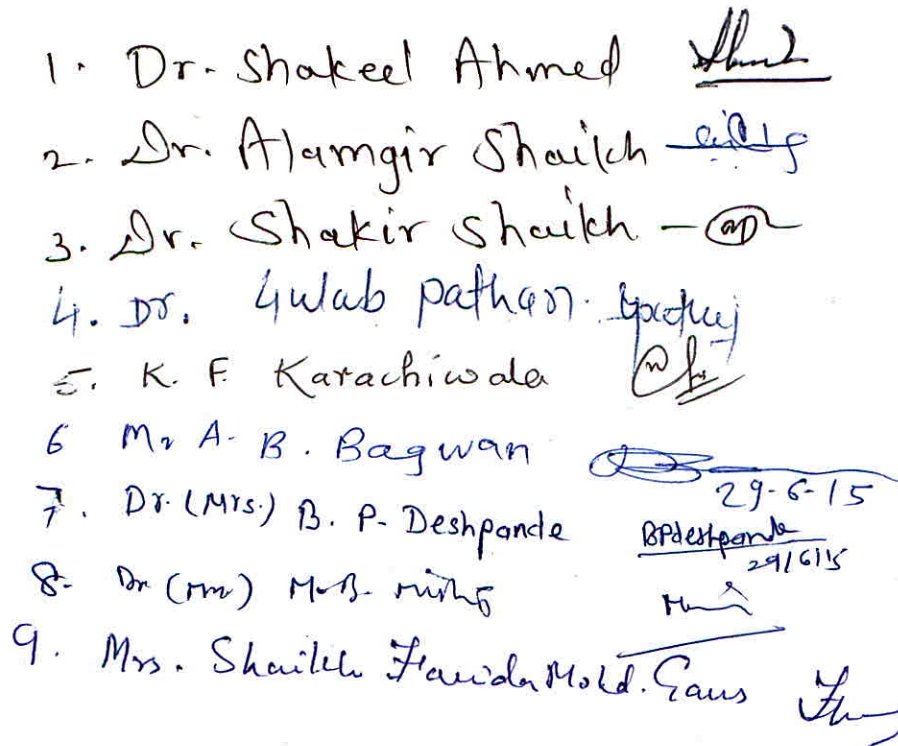 1. Dr. Shakeel Ahmed
2. Dr. Alamgir Shaikh
3. Dr. Shakir Shaikh -
4. Dr. Gulab pathan.
5. K. F. Karachiwala
6 Mr A. B. Bagwan
29-6-15
7. Dr. (Mrs.) B. P. Deshpande BPdeshpande
29/6/15
8. Dr (Mrs) M.B.
9. Mrs. Shaikh Farida Mohd. Gaus